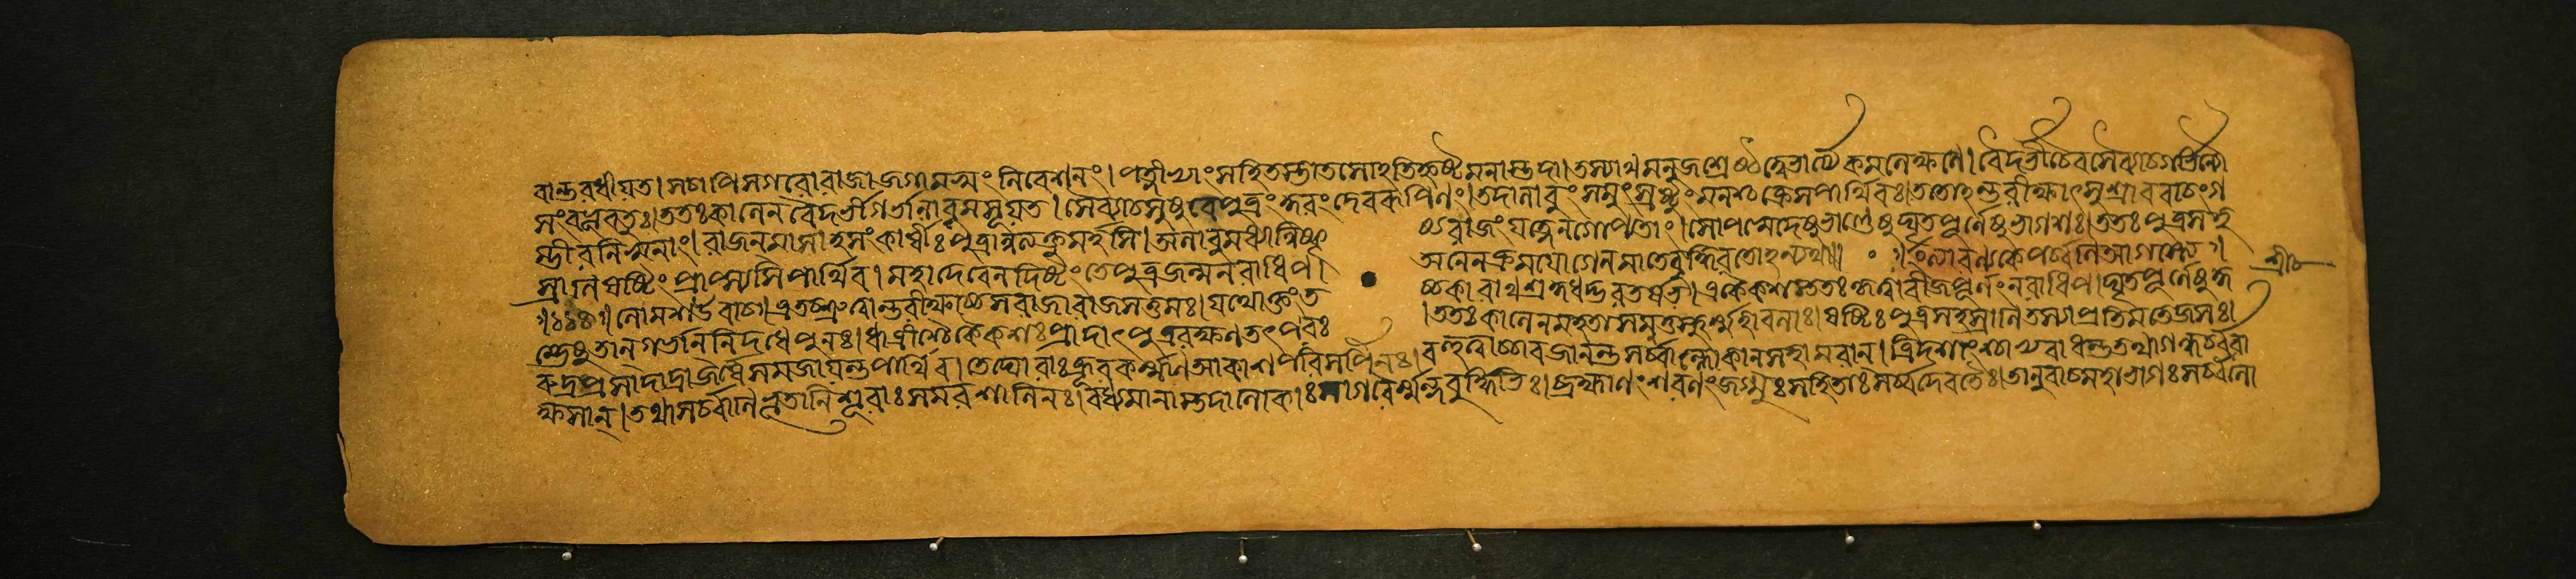 বান্তরধীয়ত। সচাপি সগরো রাজা জগাম স্বং নিবেশনং। পত্নীভ্যাং সহিতস্তাত সোঽতিহৃষ্টমনাস্তদা। তস্যাথ মনুজশ্রেষ্ঠ তে ভার্য্যে কমলেক্ষণে। বৈদর্ভী চৈব সৈব্যা চ গর্ভিণ্যৌ
সংবভূবতুঃ। ততঃ কালেন বৈদর্ভী গর্ভালাবুমসূয়ত। সৈব্যা চ সুষুবে পুত্রং কুমারং দেবরূপিণং। তদালাবুং সমুৎস্রষ্টুং মনশ্চক্রে স পার্থিবঃ। ততোঽন্তরীক্ষাৎ সুশ্রাব বাচং গ
ম্ভীরনিস্বনাং। রাজন্মা সাহসং কার্ষীঃ পুত্রান্নত্যক্তুমর্হসি। অলাবুমধ্যান্নিষ্কৃ ষ্য বীজং যত্নেন গোপ্যতাং। সোপস্বেদেষু ভাণ্ডেষু ঘৃতপূর্ণেষু ভাগশঃ। ততঃ পুত্রসহ
স্রাণি ষষ্টিং প্রাপ্স্যসি পার্থিব। মহাদেবেন দিষ্টং তে পুত্রজন্ম নরাধিপ। অনেন ক্রমযোগেন মা তে বুদ্ধিরতোঽন্যথা॥ ॥ ইত্যারণ্যকে পর্ব্বণি আগস্ত্যে॥
॥ লোমশ উবাচ। এতচ্ছ্রুত্বান্তরীক্ষাচ্চ স রাজা রাজসত্তমঃ। যথোক্তং ত চ্চকারাথ শ্রদ্দধদ্ভরতর্ষভ। একৈকশস্ততঃ কৃত্বা বীজপূর্ণং নরাধিপ। ঘৃতপূর্ণেষু কু
ম্ভেষু তান্ গর্ভান্নিদধে পুনঃ। ধাত্রীশ্চৈকৈকশঃ প্রাদাৎ পুত্ররক্ষণতৎপরঃ। ততঃ কালেন মহতা সমুত্তস্থুর্ম্মহাবলাঃ। ষষ্টিঃ পুত্রসহস্রাণি তস্যাপ্রতিমতেজসঃ।
রুদ্রপ্রসাদাদ্রাজর্ষেঃ সমজায়ন্ত পার্থিব। তে ঘোরাঃ ক্রূরকর্ম্মাণ আকাশপরিসর্পিণঃ। বহুত্বাচ্চাবজানন্ত সর্ব্বাল্লোকান্ সহামরান্। ত্রিদশাংশ্চাপ্যবাধন্ত তথা গন্ধর্ব্বরা
ক্ষসান্। তথা সর্ব্বাণি ভূতানি শূরাঃ সমরশালিনঃ। বধ্যমানাস্তদা লোকাঃ সাগরৈর্ম্মন্দবুদ্ধিভিঃ। ব্রহ্মাণং শরণং জগ্মুঃ সহিতাঃ সর্ব্বদেবতৈঃ। তানুবাচ মহাভাগঃ সর্ব্বলো
শ্রীঃ